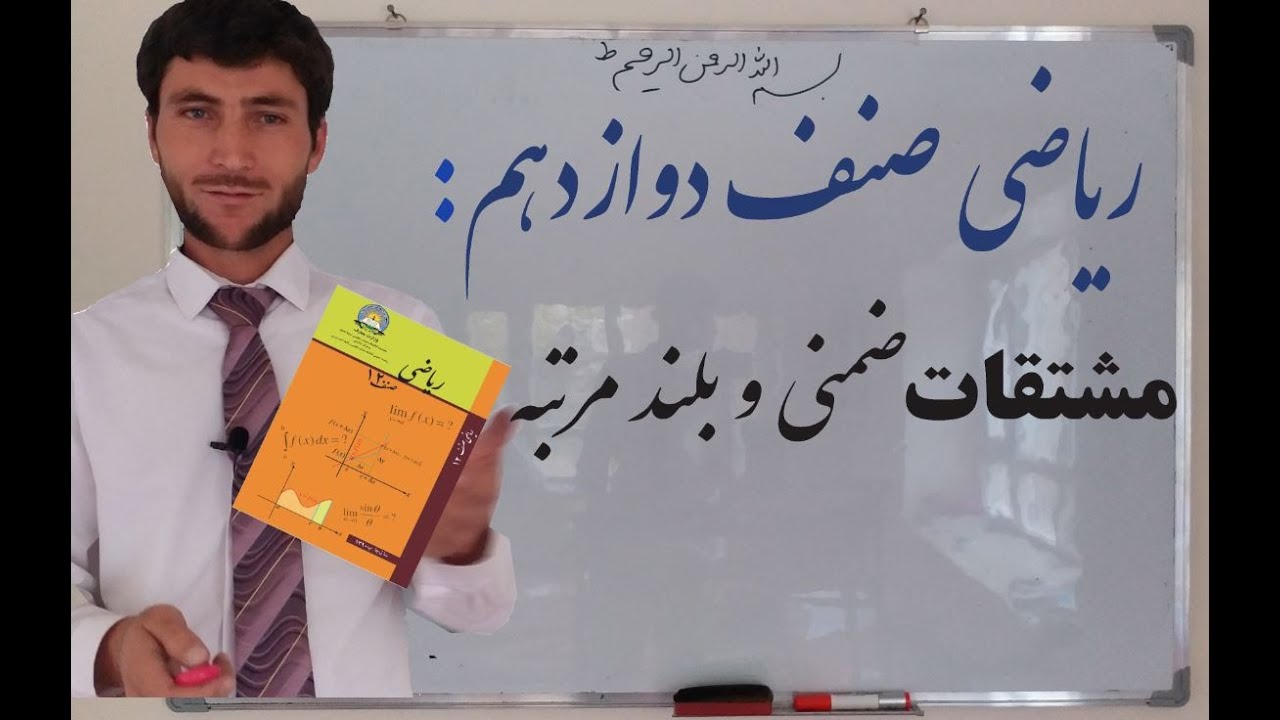 بسم الله الرحمن الرحیم ط
ریاضی صنف دوازدهم :
مشتقات ضمنی و بلند مرتبه
ریاضی
صنف ۱۲
lim f(x) = ?
∫ f(x)dx = ?
lim sinθ/θ = ?
ریاضی صنف ۱۲